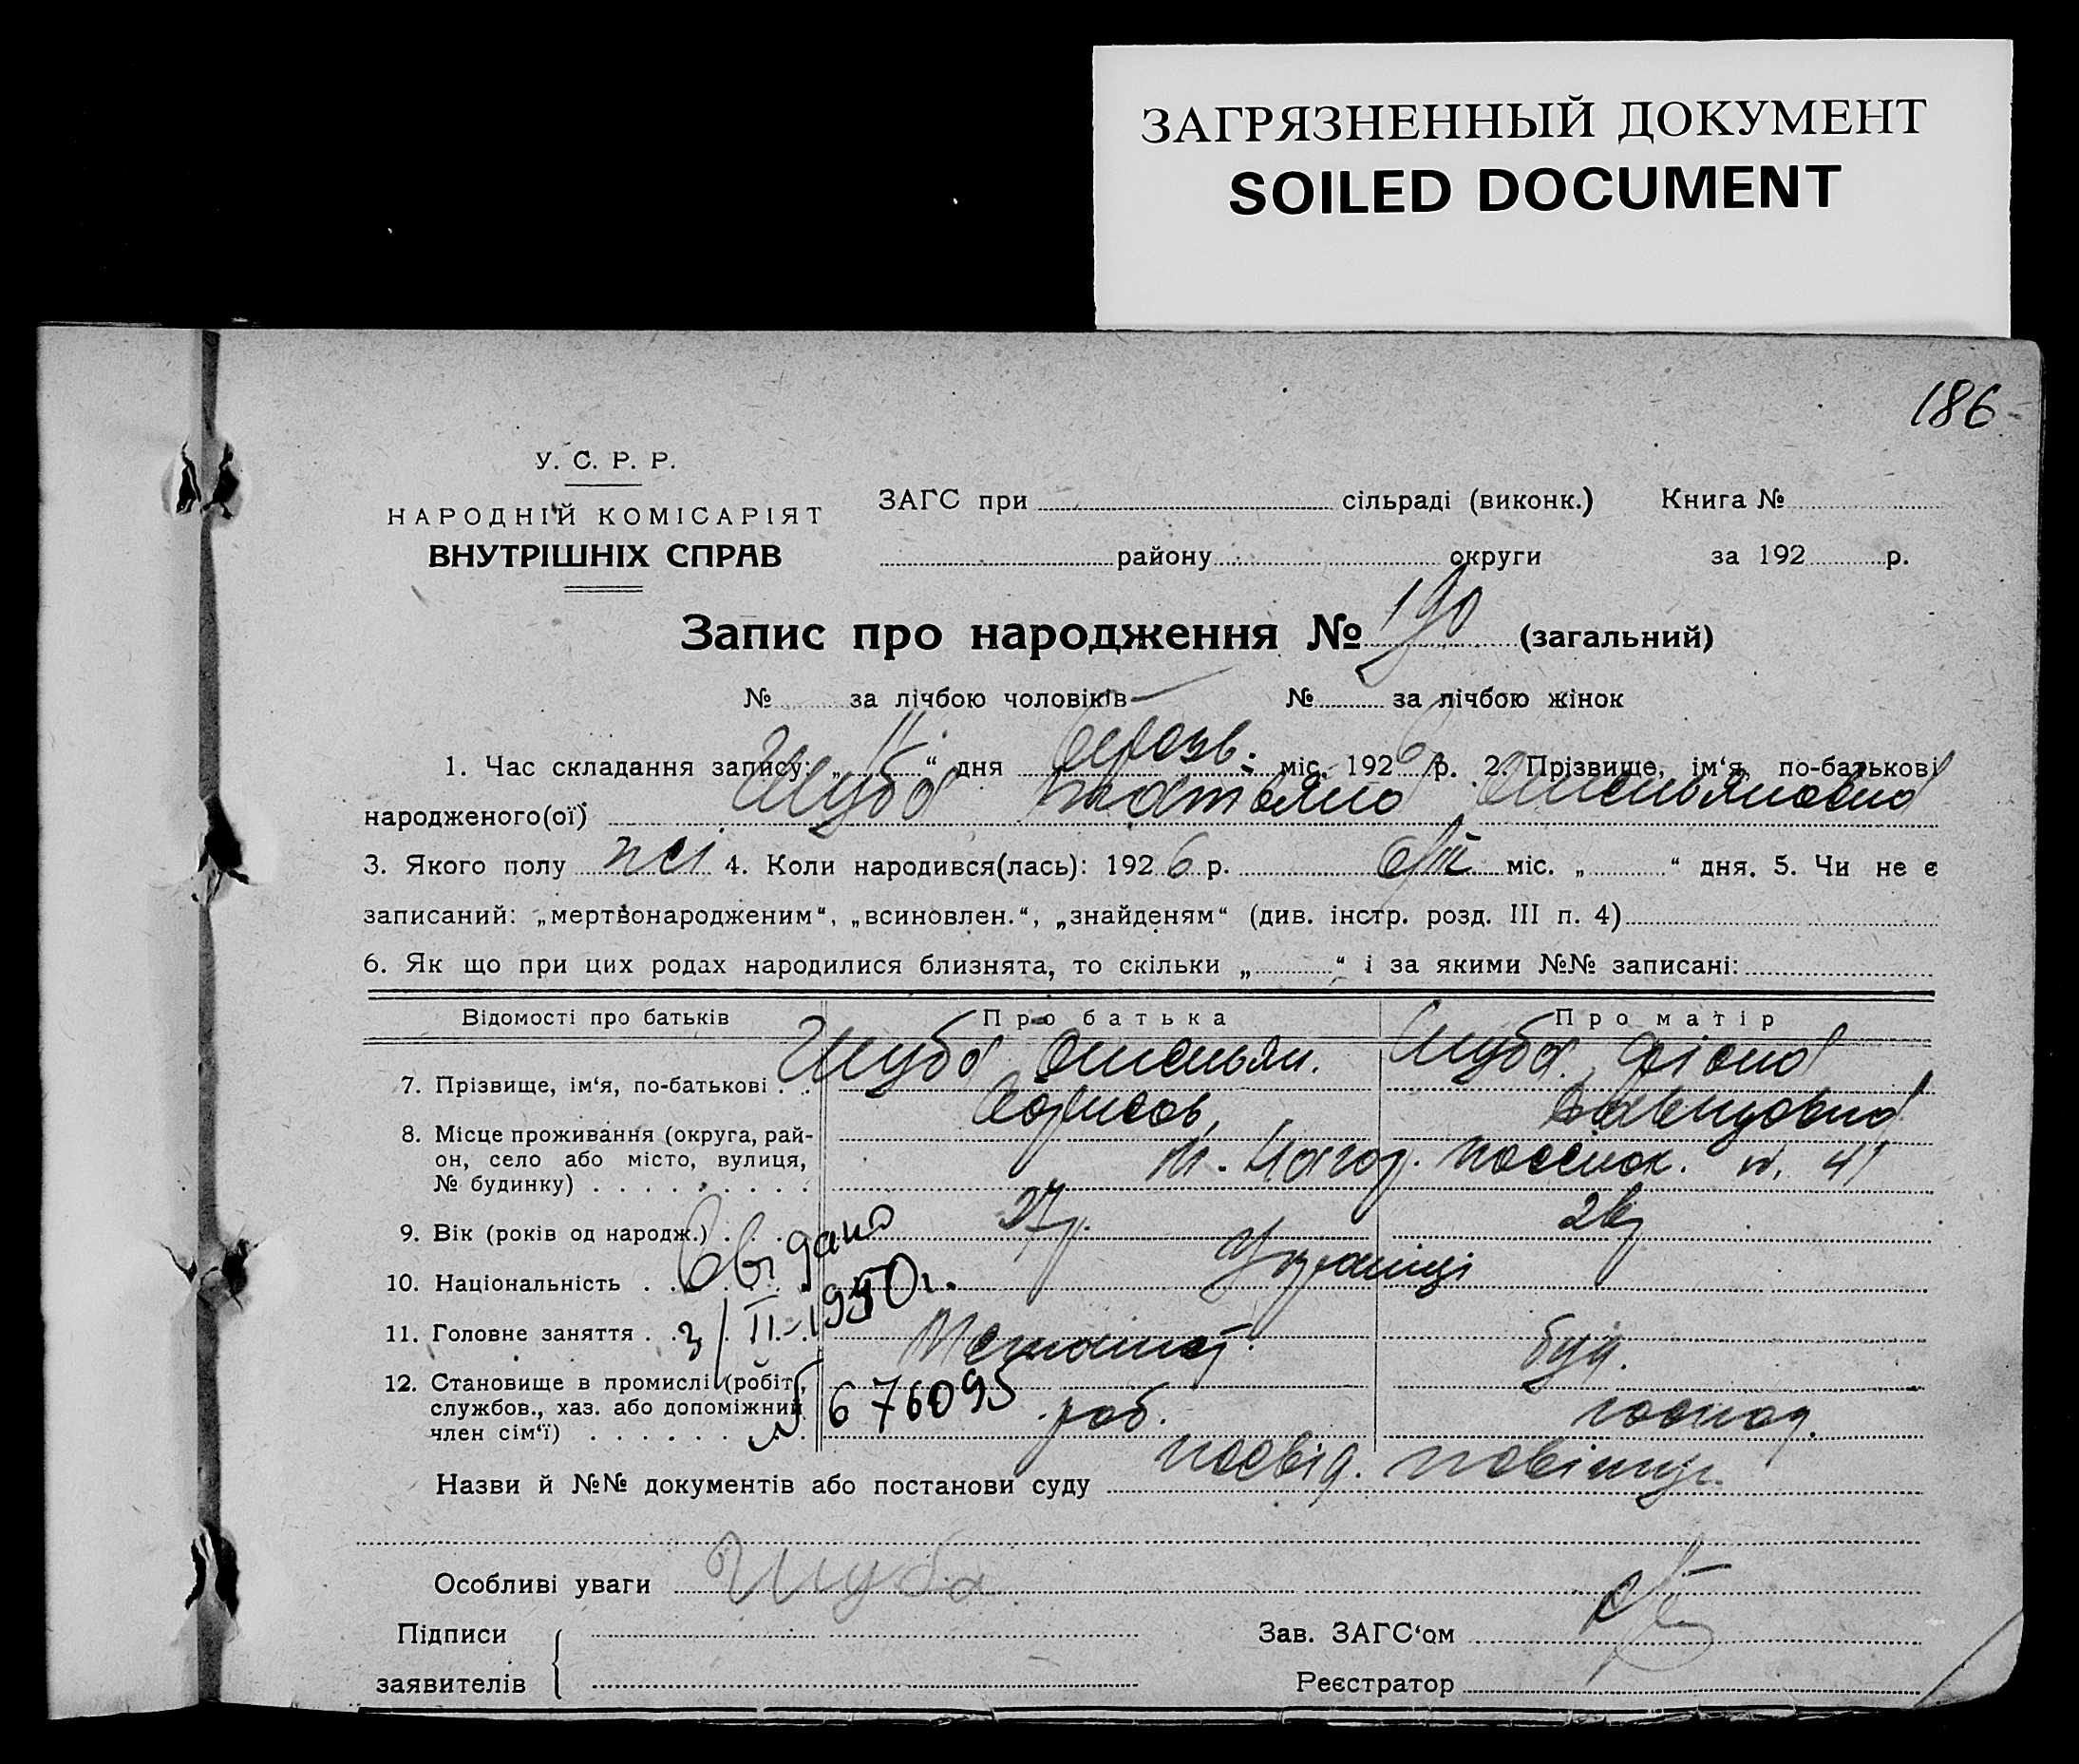 ЗАГРЯЗНЕННЫЙ ДОКУМЕНТ
SOILED DOCUMENT
186
У. С. Р. Р.
НАРОДНІЙ КОМІСАРІЯТ
ВНУТРІШНІХ СПРАВ
ЗАГС при сільраді (виконк.) Книга №
району округи за 192 р.
Запис про народження № 190 (загальний)
№ за лічбою чоловіків № за лічбою жінок
1. Час складання запису: „11“ дня березь. міс. 1926 р. 2. Прізвище, ім‘я, по-батькові
народженого(ої) Шуба Омельяновна
3. Якого полу жі 4. Коли народився(лась): 1926 р. міс. „ “ дня. 5. Чи не є
записаний: „мертвонародженим“, „всиновлен.“, „знайденям“ (див. інстр. розд. III п. 4)
6. Як що при цих родах народилися близнята, то скільки „ “ і за якими №№ записані:
Відомості про батьків Про батька Про матір
7. Прізвище, ім‘я, по-батькові . . Шуба Омельян. Шуба
Борисов,
8. Місце проживання (округа, рай-
он, село або місто, вулиця,
№ будинку) . . . . . . . . . посёлок. 41
9. Вік (років од народж.) . . 37 р.
10. Національність . . . Українці
Свід дано
3/II-1950 г.
11. Головне заняття . .
12. Становище в промислі (робіт.,
службов., хаз. або допоміжний
член сім‘ї) . . . . . . . роб. господ.
№ 676095
Назви й №№ документів або постанови суду посвід.
Особливі уваги Шуба
Підписи
заявителів
Зав. ЗАГС‘ом
Реєстратор